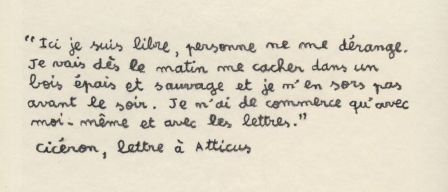 "Ici je suis libre, personne ne me dérange.
Je vais dès le matin me cacher dans un
bois épais et sauvage et je n'en sors pas
avant le soir. Je n'ai de commerce qu'avec
moi-même et avec les lettres."
Cicéron, lettre à Atticus